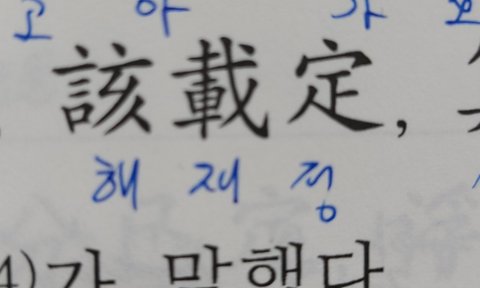 고 아 가 모
該載定,
해 재 정
4)가 말했다